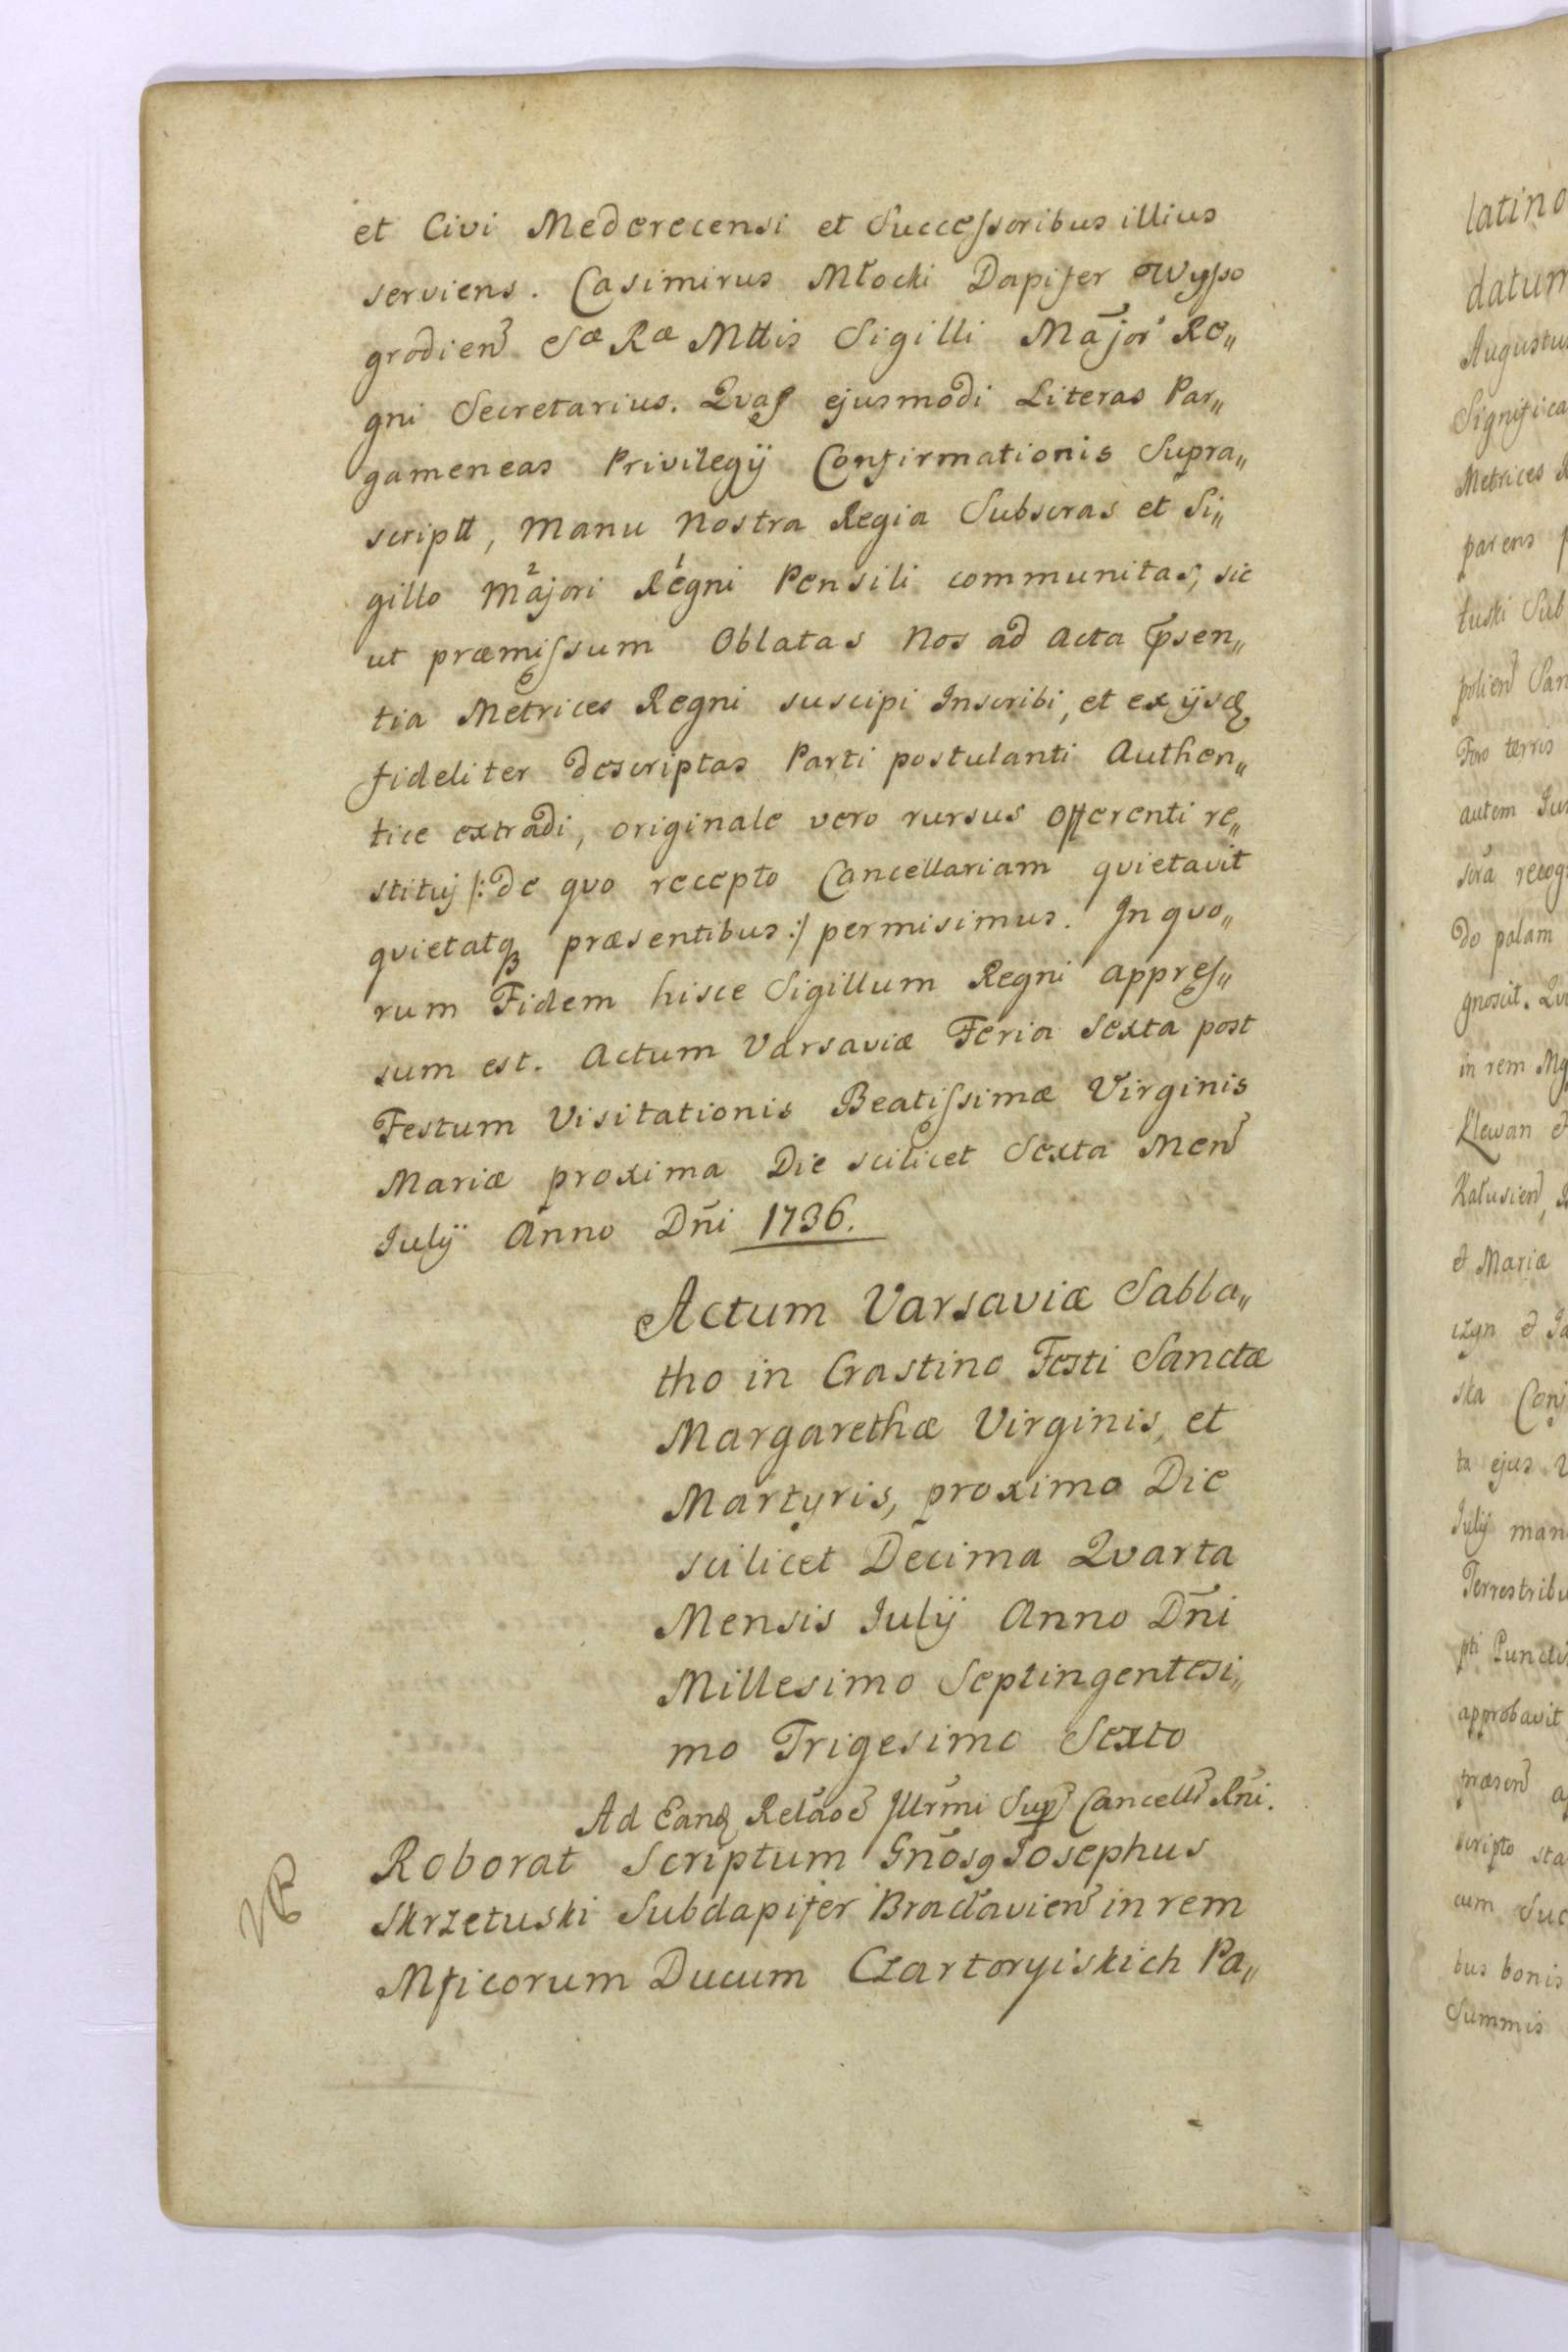 et Civi Mederecensi et Succeſsoribus illius
serviens. Casimirus Młocki Dapifer Wyſso
grodieñ Sæ Ræ Mttis Sigilli Major Re„
gni Secretarius. Qvas ejusmodi Literas Par„
gameneas Privilegÿ Confirmationis Supra„
scriptt, Manu Nostra Regia Subscras et Si„
gillo Majori Regni Pensili communitas, sic
ut præmiſsum Oblatas Nos ad Acta p̃sen„
tia Metrices Regni suscipi Inscribi, et ex ÿsdẽ
fideliter descriptas Parti postulanti Authen„
tice extradi, originale vero rursus Offerenti re„
stituj /: de qvo recepto Cancellariam qvietavit
qvietatqꝫ præsentibus :/ permisimus. In qvo„
rum Fidem hisce Sigillum Regni appreſ„
sum est. Actum Varsaviæ Feria Sexta post
Festum Visitationis Beatiſsimæ Virginis
Mariæ proxima Die scilicet Sexta Meñ
Julÿ Anno Dñi 1736.
Actum Varsaviæ Sabba„
tho in Crastino Festi Sanctæ
Margarethæ Virginis, et
Martyris, proximo Die
scilicet Decima Qvarta
Mensis Julÿ Anno Dñi
Millesimo Septingentesi„
mo Trigesimo Sexto
Ad Eandẽ Relãoẽ Illr̃mi Sup̃ Cancell̃ Rñi.
Roborat Scriptum Gñosꝯ Josephus
Skrzetuski Subdapifer Bracłavieñ in rem
Mficorum Ducum Czartoryiskich Pa„
latino
datum
Augustu
Significa
Metrices R
parens p
tuski Sub
polieñ San
Foro terris
autem Jur
scrã recog
do palam
gnoscit. Qu
in rem Mg
Klewan et
Kałusieñ, R
et Mariæ
czyn et Ja
ska Conj
ta ejus V
Julÿ man
Terrestribu
pti Puncti
approbavit
præseñ a
scripto sta
cum Suc
bus bonis
Summis